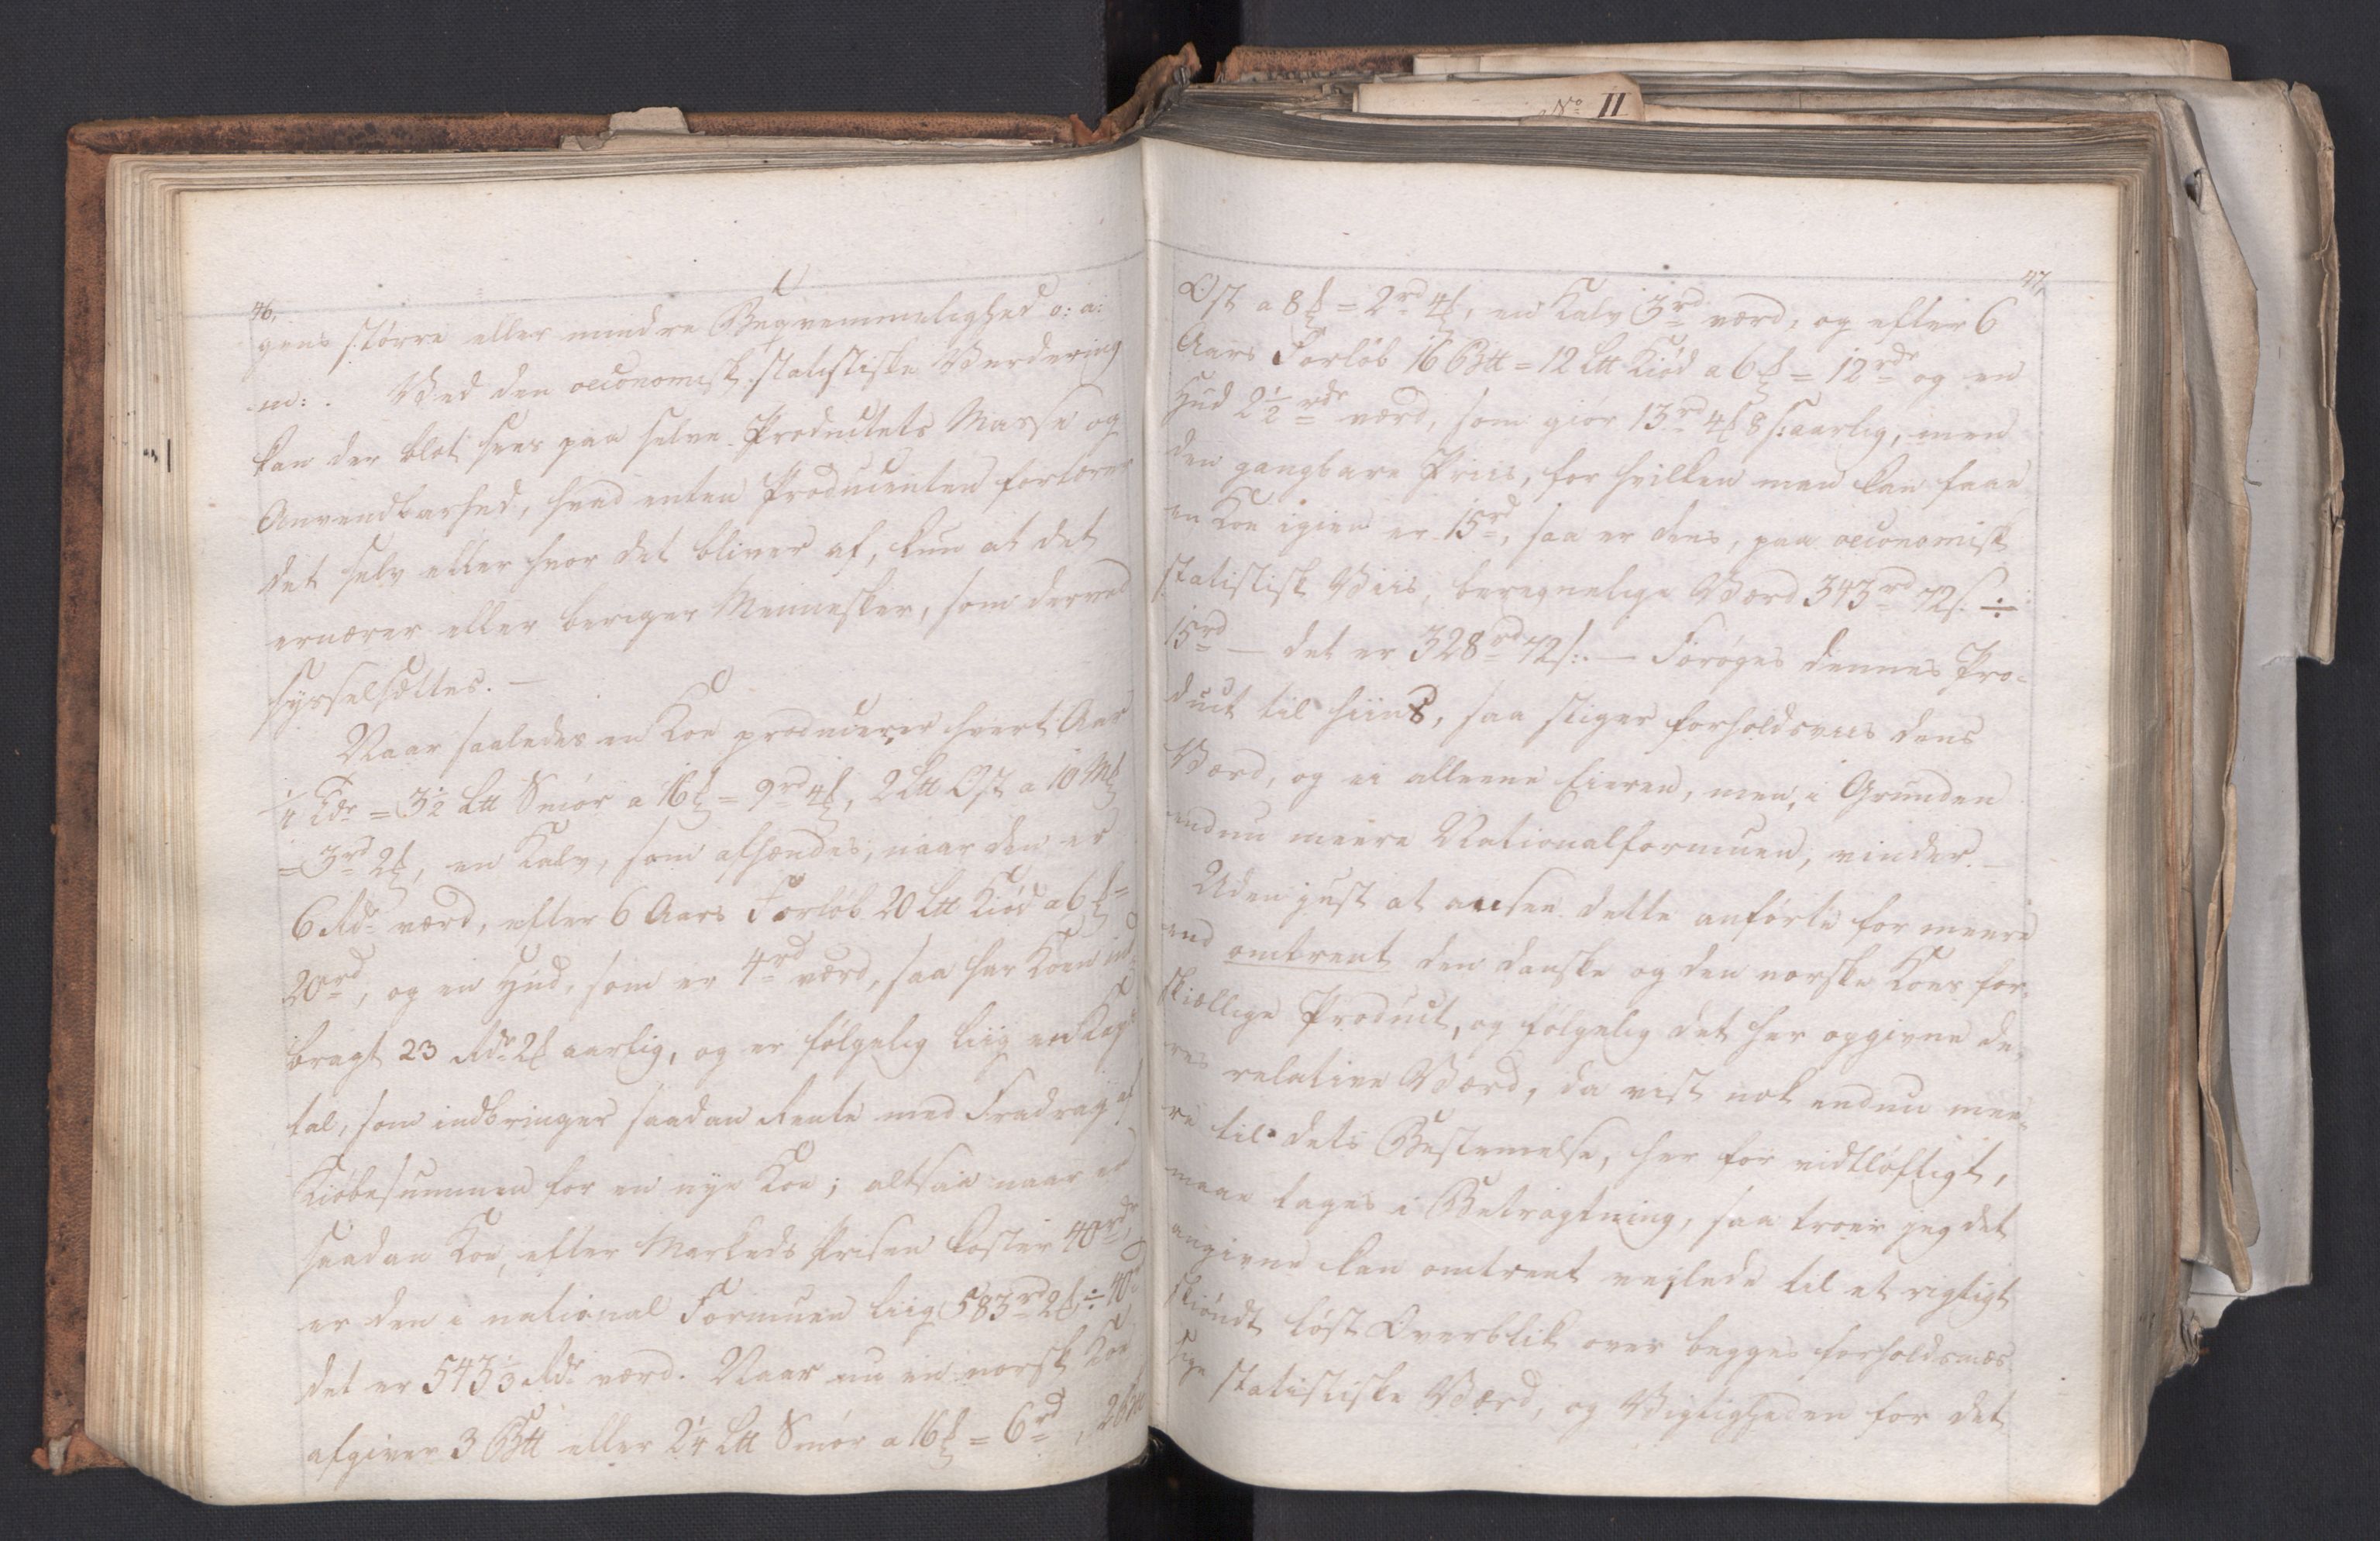 46,
gens større eller mindre Beqvemmelighed o: a:
m: . Ved den oeconomisk-statistiske Vurdering
kan der blot sees paa selve Productets Masse og
Anvendbarhed, hvad enten Producenten fortærer
det selv eller hvor det bliver af, kun at det
ernærer eller beriger Mennesker, som derved
sysselsættes. —
Naar saaledes en Koe producerer hvert Aar
¼ Tdr = 3½ L℔ Smør a 16 ß = 9rd 4 ß, 2 L℔ Ost a 10 Mß
= 3rd 2 ß, en Kalv, som afhændes, naar den er
6 Rdr værd, efter 6 Aars Forløb 20 L℔ Kiød a 6 ß =
20rd, og en Hud, som er 4rd værd, saa har Koen ind-
bragt 23 Rdr 2 ß aarlig, og er følgelig liig en Kapi-
tal, som indbringer saadan Rente med Fradrag af
Kiøbesummen for en nye Koe; altsaa naar en
saadan Koe, efter Markeds Prisen koster 40rdr,
er den i national Formuen liig 583rd 2 ß ÷ 40rd
det er 543⅓ Rdr værd. Naar nu en norsk Koe
afgiver 3 B℔ eller 2¼ L℔ Smør a 16 ß = 6rd, 2 B℔
47,
Ost a 8 ß = 2rd 4 ß, en Kalv 3rd værd, og efter 6
Aars Forløb 16 B℔ = 12 L℔ Kiød a 6 ß = 12rdr og en
Hud 2½ rdr værd, som giør 13rd 4 ß 8 s: aarlig, men
den gangbare Priis, for hvilken man kan faae
en Koe igien er 15rd, saa er dens, paa oeconomisk
statistisk Viis, beregnelige Værd 343rd 72 s. ÷
15rd — det er 328rd 72 s: — Forøges dennes Pro-
duct til hiins, saa stiger forholdsviis dens
Værd, og ei alleene Eieren, men, i Grunden
endnu meere Nationalformuen, vinder. —
Uden just at ansee dette anførte for meere
end omtrent den danske og den norske Koes for-
skiællige Product, og følgelig det her opgivne de-
res relative Værd, da vist nok endnu mee-
re til dets Bestemelse, her for vidtløftigt,
maae tages i Betragtning, saa troer jeg det
angivne kan omtrent veilede til et rigtigt
skiøndt løst Overblik over begges forholdsmæs-
sige statistiske Værd, og Vigtigheden for det
No II